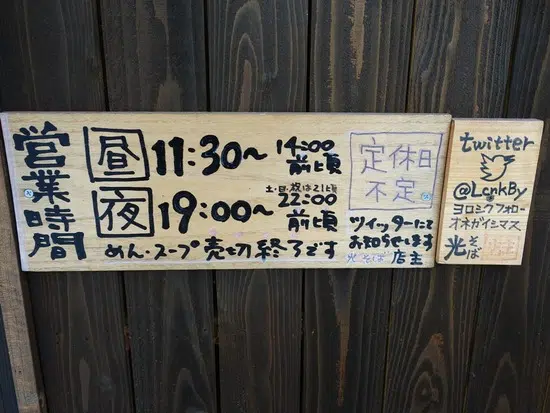 営業時間
昼 11:30〜 14:00前頃
土・日・祝は21頃
夜 19:00〜 22:00前頃
めん・スープ売切終了です
定休日
不定
ツイッターにて
お知らせします
光そば 店主
twitter
@LcnkBy
ヨロシクフォロー
オネガイシマス
光そば
店主